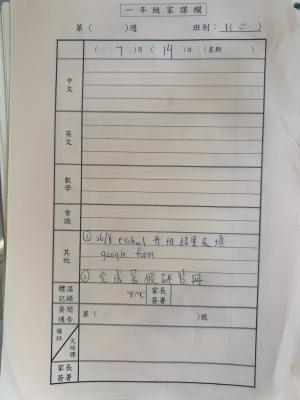 一年級家課欄
第（　　）週　班別：1(C)
（7）月（14）日（星期　）
中文
英文
數學
常識
其他
① 26/8 eschool 升班結果及填
google form
② 完成暑假研習冊.
體溫記錄　°F/°C　家長簽署
簽閱通告　第（　　）號
備註　欠功課
家長簽署